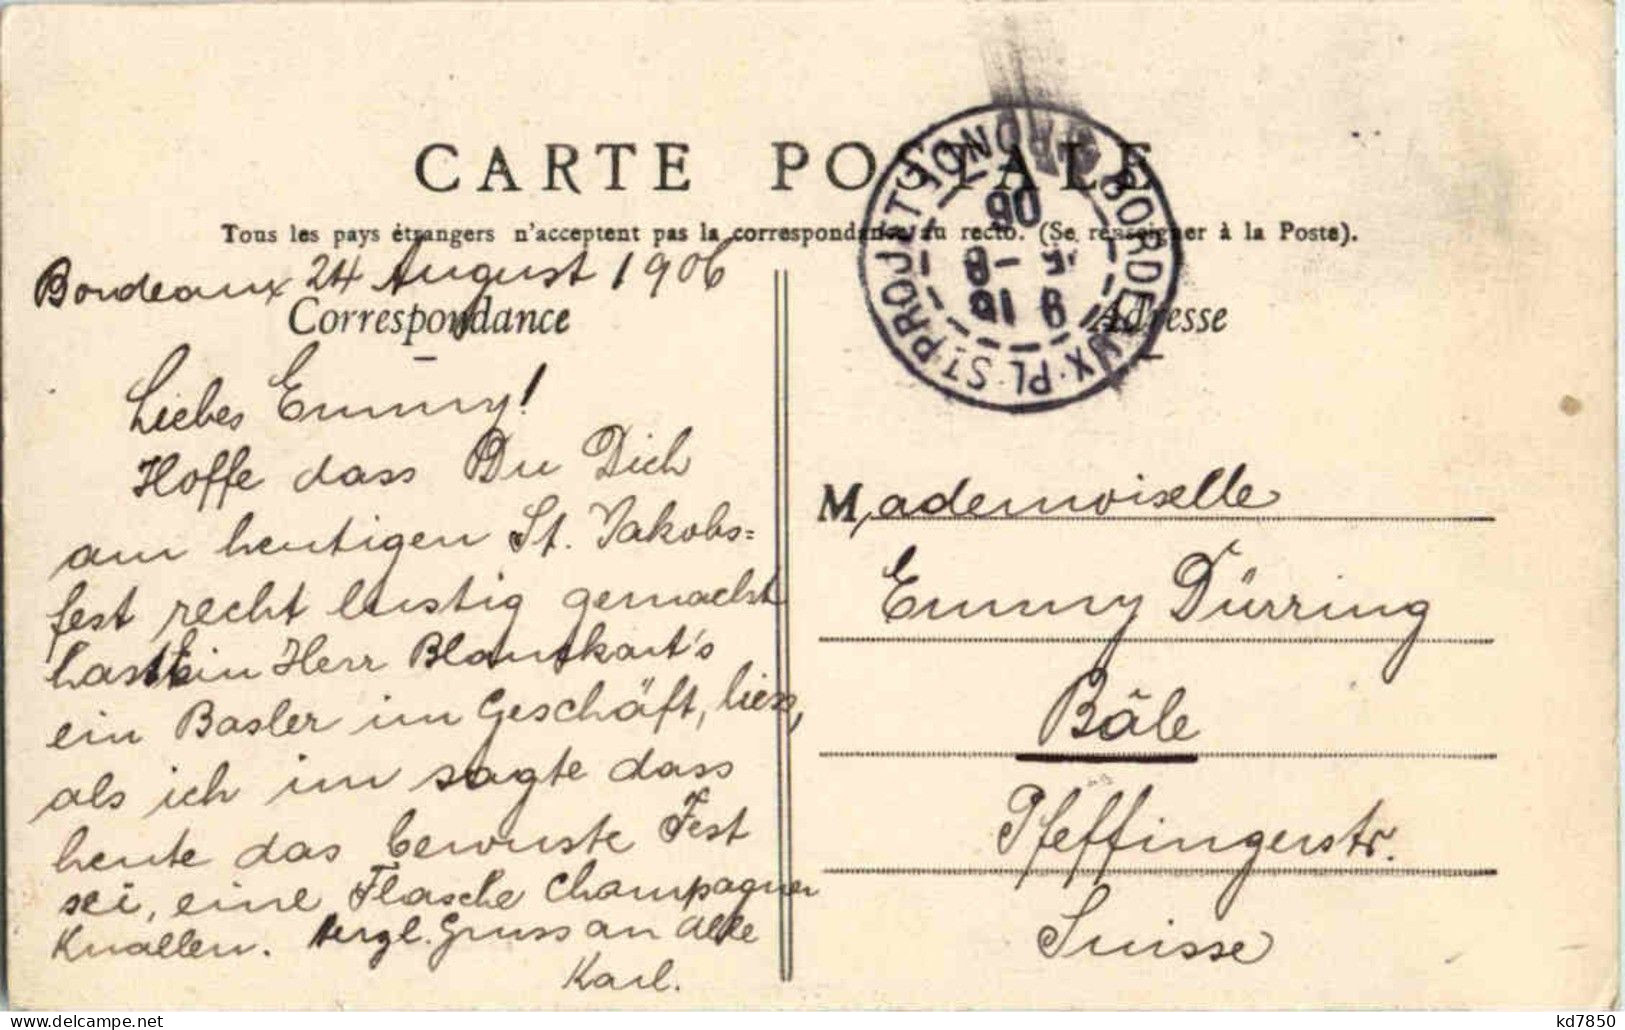 CARTE POSTALE
Tous les pays étrangers n'acceptent pas la correspondance au recto. (Se renseigner à la Poste).
Bordeaux 24 August 1906
Correspondance
Liebes Emmy!
Hoffe dass Du Dich
am heutigen St. Jakobs=
fest recht lustig gemacht
hast Herr
ein Basler im Geschäft, liess,
als ich im sagte dass
heute das bewuste Fest
sei, eine Flasche Champagner
Knallen. Herzl. Gruss an Alle
Karl.
BORDEAUX·PL·ST·PROJET
GIRONDE
9 15
06
Adresse
Mademoiselle
Emmy Dürring
Bâle
Pfeffingerstr.
Suisse
kd7850